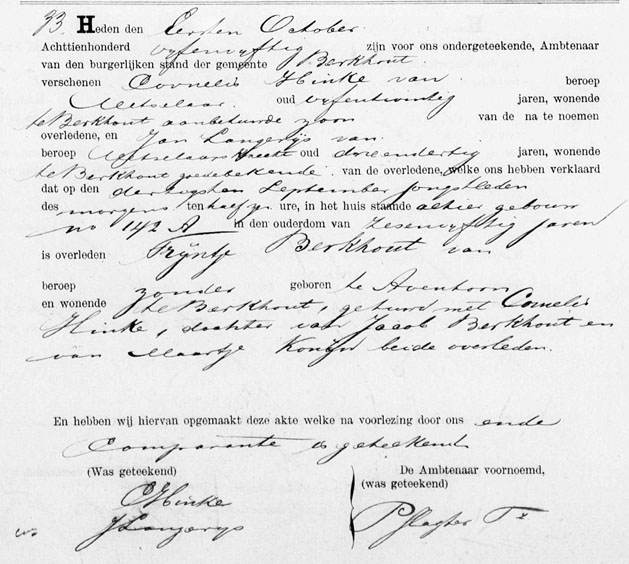 33. Heden den Eersten October
Achttienhonderd vyfenvyftig zijn voor ons ondergeteekende, Ambtenaar
van den burgerlijken stand der gemeente Berkhout
verschenen Cornelis Hinke van beroep
Metselaar oud vyfentwintig jaren, wonende
te Berkhout aanbehuwde zoon van de na te noemen
overledene, en Jan Langerijs van
beroep Metselaarsknecht oud drieendertig jaren, wonende
te Berkhout goedebekende van de overledene, welke ons hebben verklaard
dat op den dertigsten September jongstleden
des morgens ten half zes ure, in het huis staande alhier gebouw
no 142 A in den ouderdom van Zesenvyftig jaren
is overleden Trijntje Berkhout van
beroep zonder geboren te Avenhorn
en wonende te Berkhout, gehuwd met Cornelis
Hinke, dochter van Jacob Berkhout en
van Maartje Konijn beide overleden.
En hebben wij hiervan opgemaakt deze akte welke na voorlezing door ons ende
Comparante is geteekend
(Was geteekend) De Ambtenaar voornoemd,
(was geteekend)
C Hinke
J Langerijs
P Slagter